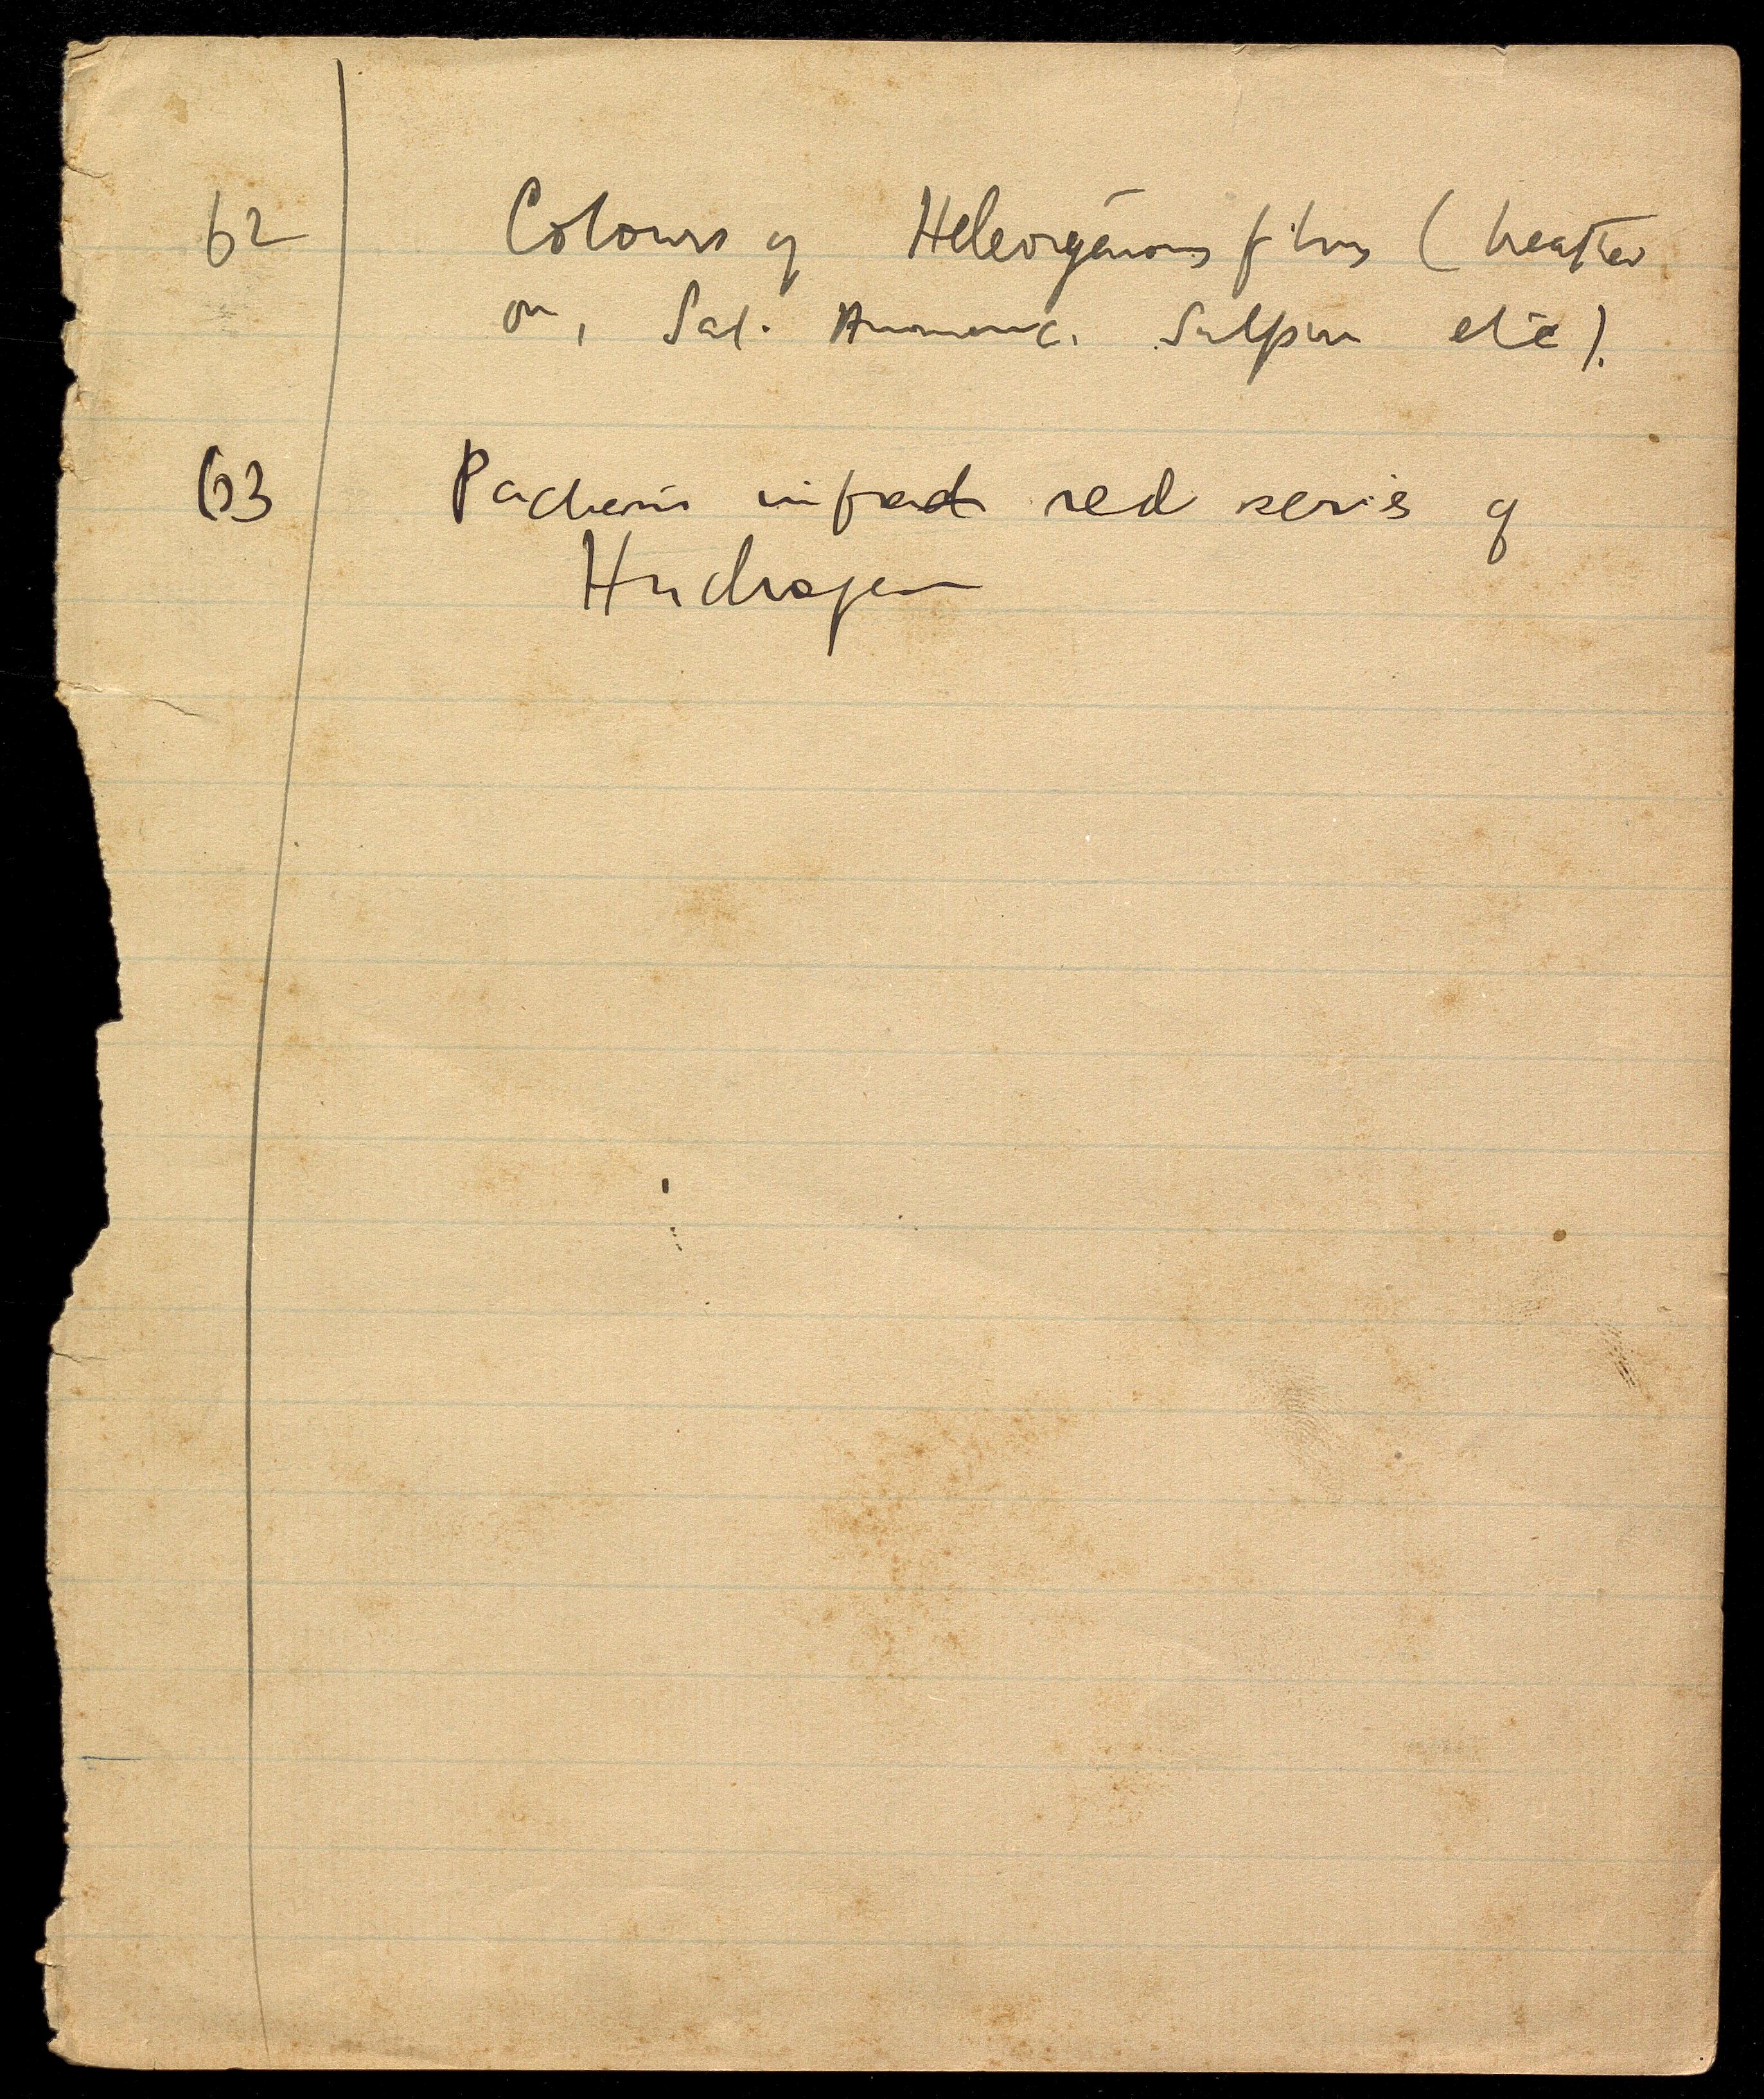 62 Colours of Heterogenous films (breathed
on, Sal. Ammoniac. Sulphur etc).
63 Paschen's infra red series of
Hydrogen